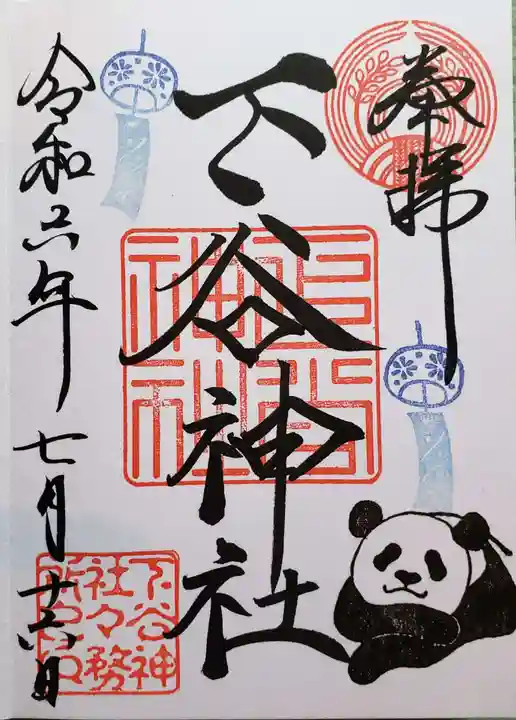 奉拝
下谷神社
下谷神社
下谷神
社々務
所之印
令和六年七月十六日